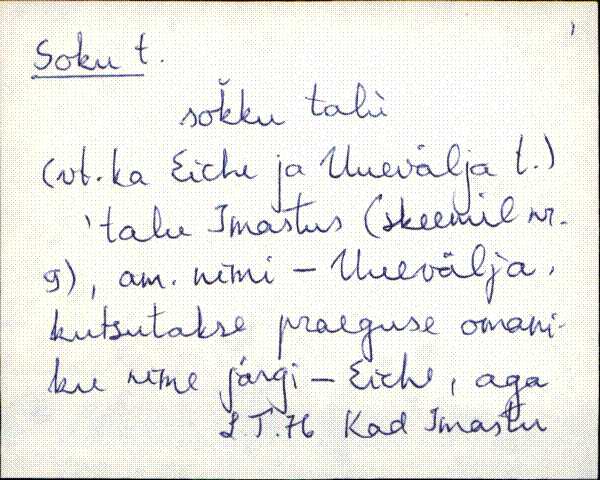 Soku t.
sok̆ku talù
(vt. ka Eiche ja Uuevälja t.)
'talu Imastus (skeemil nr.
9), am. nimi – Uuevälja,
kutsutakse praeguse omani-
ku nime järgi – Eiche, aga
L.T.76 Kad Imastu